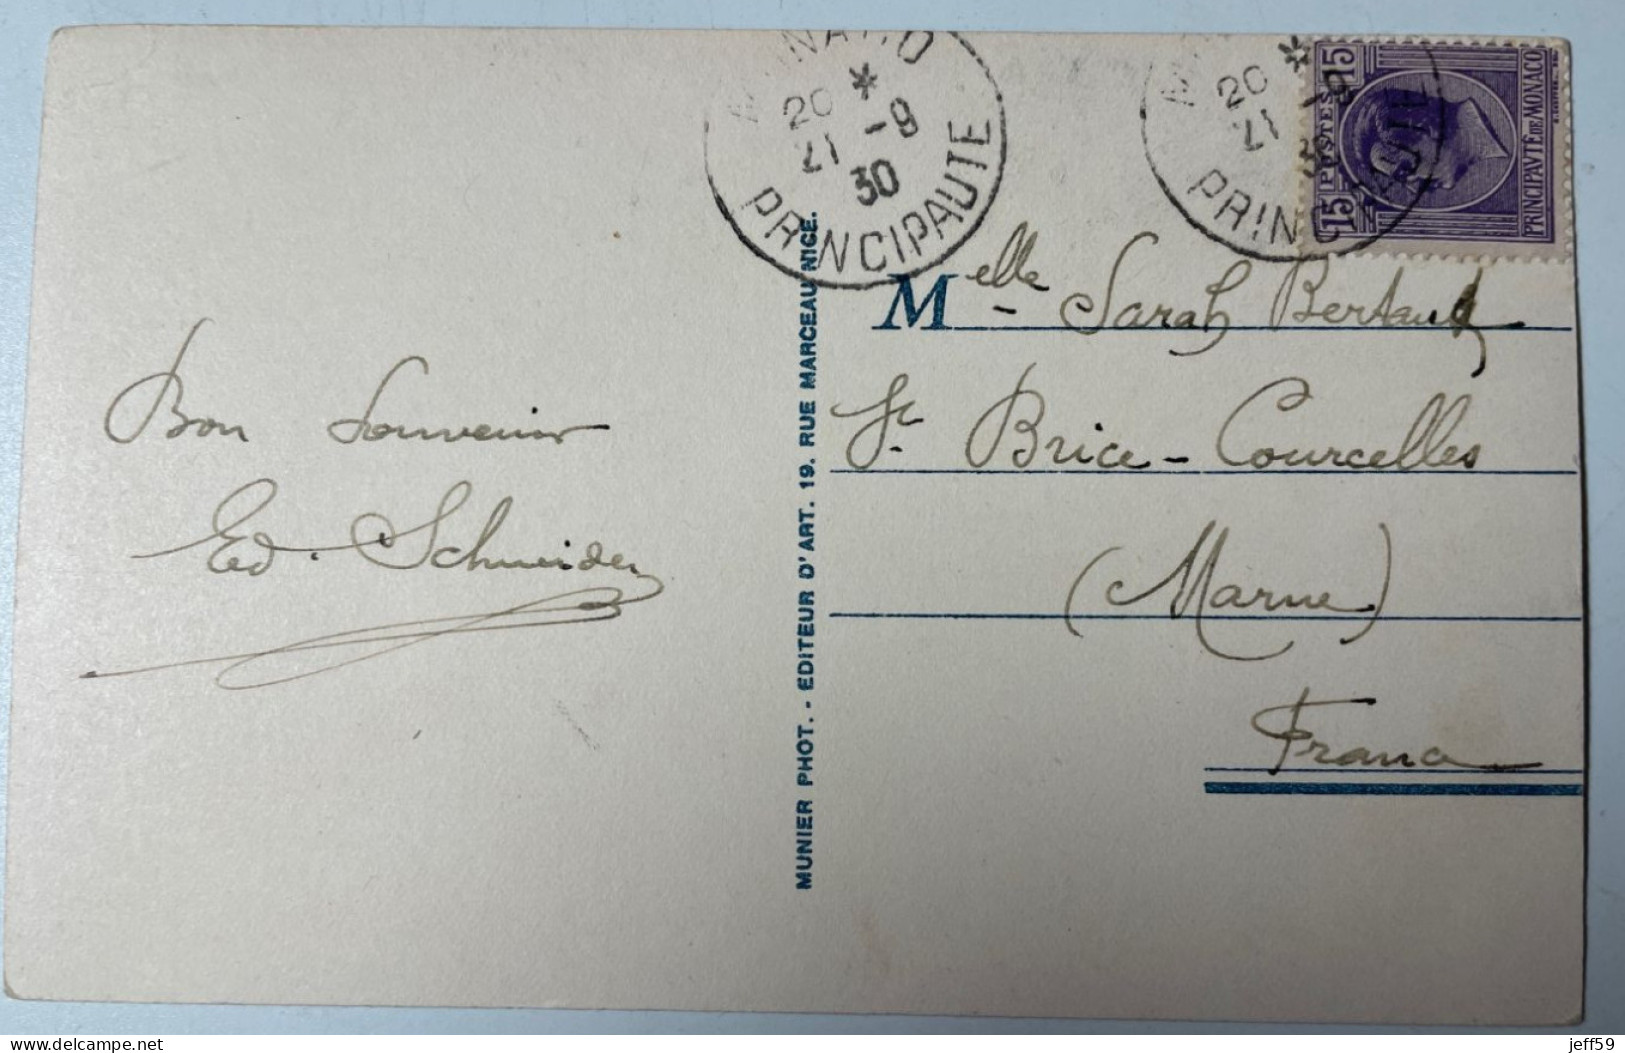 MONACO
20 *
21 -9
30
PRINCIPAUTE
MONACO
20 *
21 -9
30
PRINCIPAUTE
15 POSTES 15
PRINCIPAVTÉ DE MONACO
Bon Souvenir
Ed. Schneider
MUNIER PHOT. - EDITEUR D'ART. 19. RUE MARCEAU NICE.
Melle Sarah Bertaud
St. Brice-Courcelles
(Marne)
France
jeff59
delcampe.net